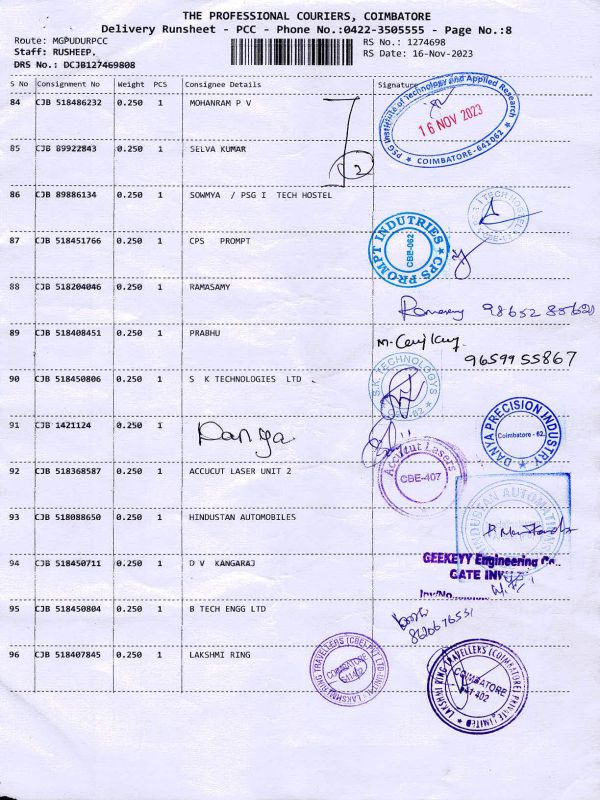 THE PROFESSIONAL COURIERS, COIMBATORE
Delivery Runsheet - PCC - Phone No.:0422-3505555 - Page No.:8
Route: MGPUDURPCC
RS No.: 1274698
Staff: RUSHEEP.
RS Date: 16-Nov-2023
DRS No.: DCJB127469808
S No Consignment No Weight PCS Consignee Details Signature
84 CJB 518486232 0.250 1 MOHANRAM P V
PSG Institute of Technology and Applied Research
16 NOV 2023
COIMBATORE-641062
85 CJB 89922843 0.250 1 SELVA KUMAR
2
86 CJB 89886134 0.250 1 SOWMYA / PSG I TECH HOSTEL
TECH HOSTEL
87 CJB 518451766 0.250 1 CPS PROMPT
CPS PROMPT INDUTRIES
CBE-062
88 CJB 518204046 0.250 1 RAMASAMY
Ramasamy
89 CJB 518408451 0.250 1 PRABHU
9659955867
90 CJB 518450806 0.250 1 S K TECHNOLOGIES LTD
S.K. TECHNOLOGYS
91 CJB 1421124 0.250 1
Danya
DANYA PRECISION INDUSTRY
Coimbatore - 62.
92 CJB 518368587 0.250 1 ACCUCUT LASER UNIT 2
Accucut Lasers
CBE-407
93 CJB 518088650 0.250 1 HINDUSTAN AUTOMOBILES
HINDUSTAN AUTOMATION
94 CJB 518450711 0.250 1 D V KANGARAJ
GEEKEYY Engineering Co.
GATE INW
Inv/No.
95 CJB 518450804 0.250 1 B TECH ENGG LTD
96 CJB 518407845 0.250 1 LAKSHMI RING
LAKSHMI RING TRAVELLERS (CBE) PVT LTD-UNIT
COIMBATORE
641402
LAKSHMI RING TRAVELLERS (COIMBATORE) PRIVATE LIMITED
COIMBATORE
641 402